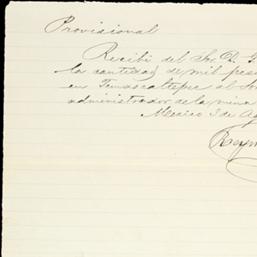 Provisional
Recibí del Sor. D. G
la cantidad de mil pes
en Temascaltepec al So
administrador de la mina
Mexico 3 de Ag
Raym